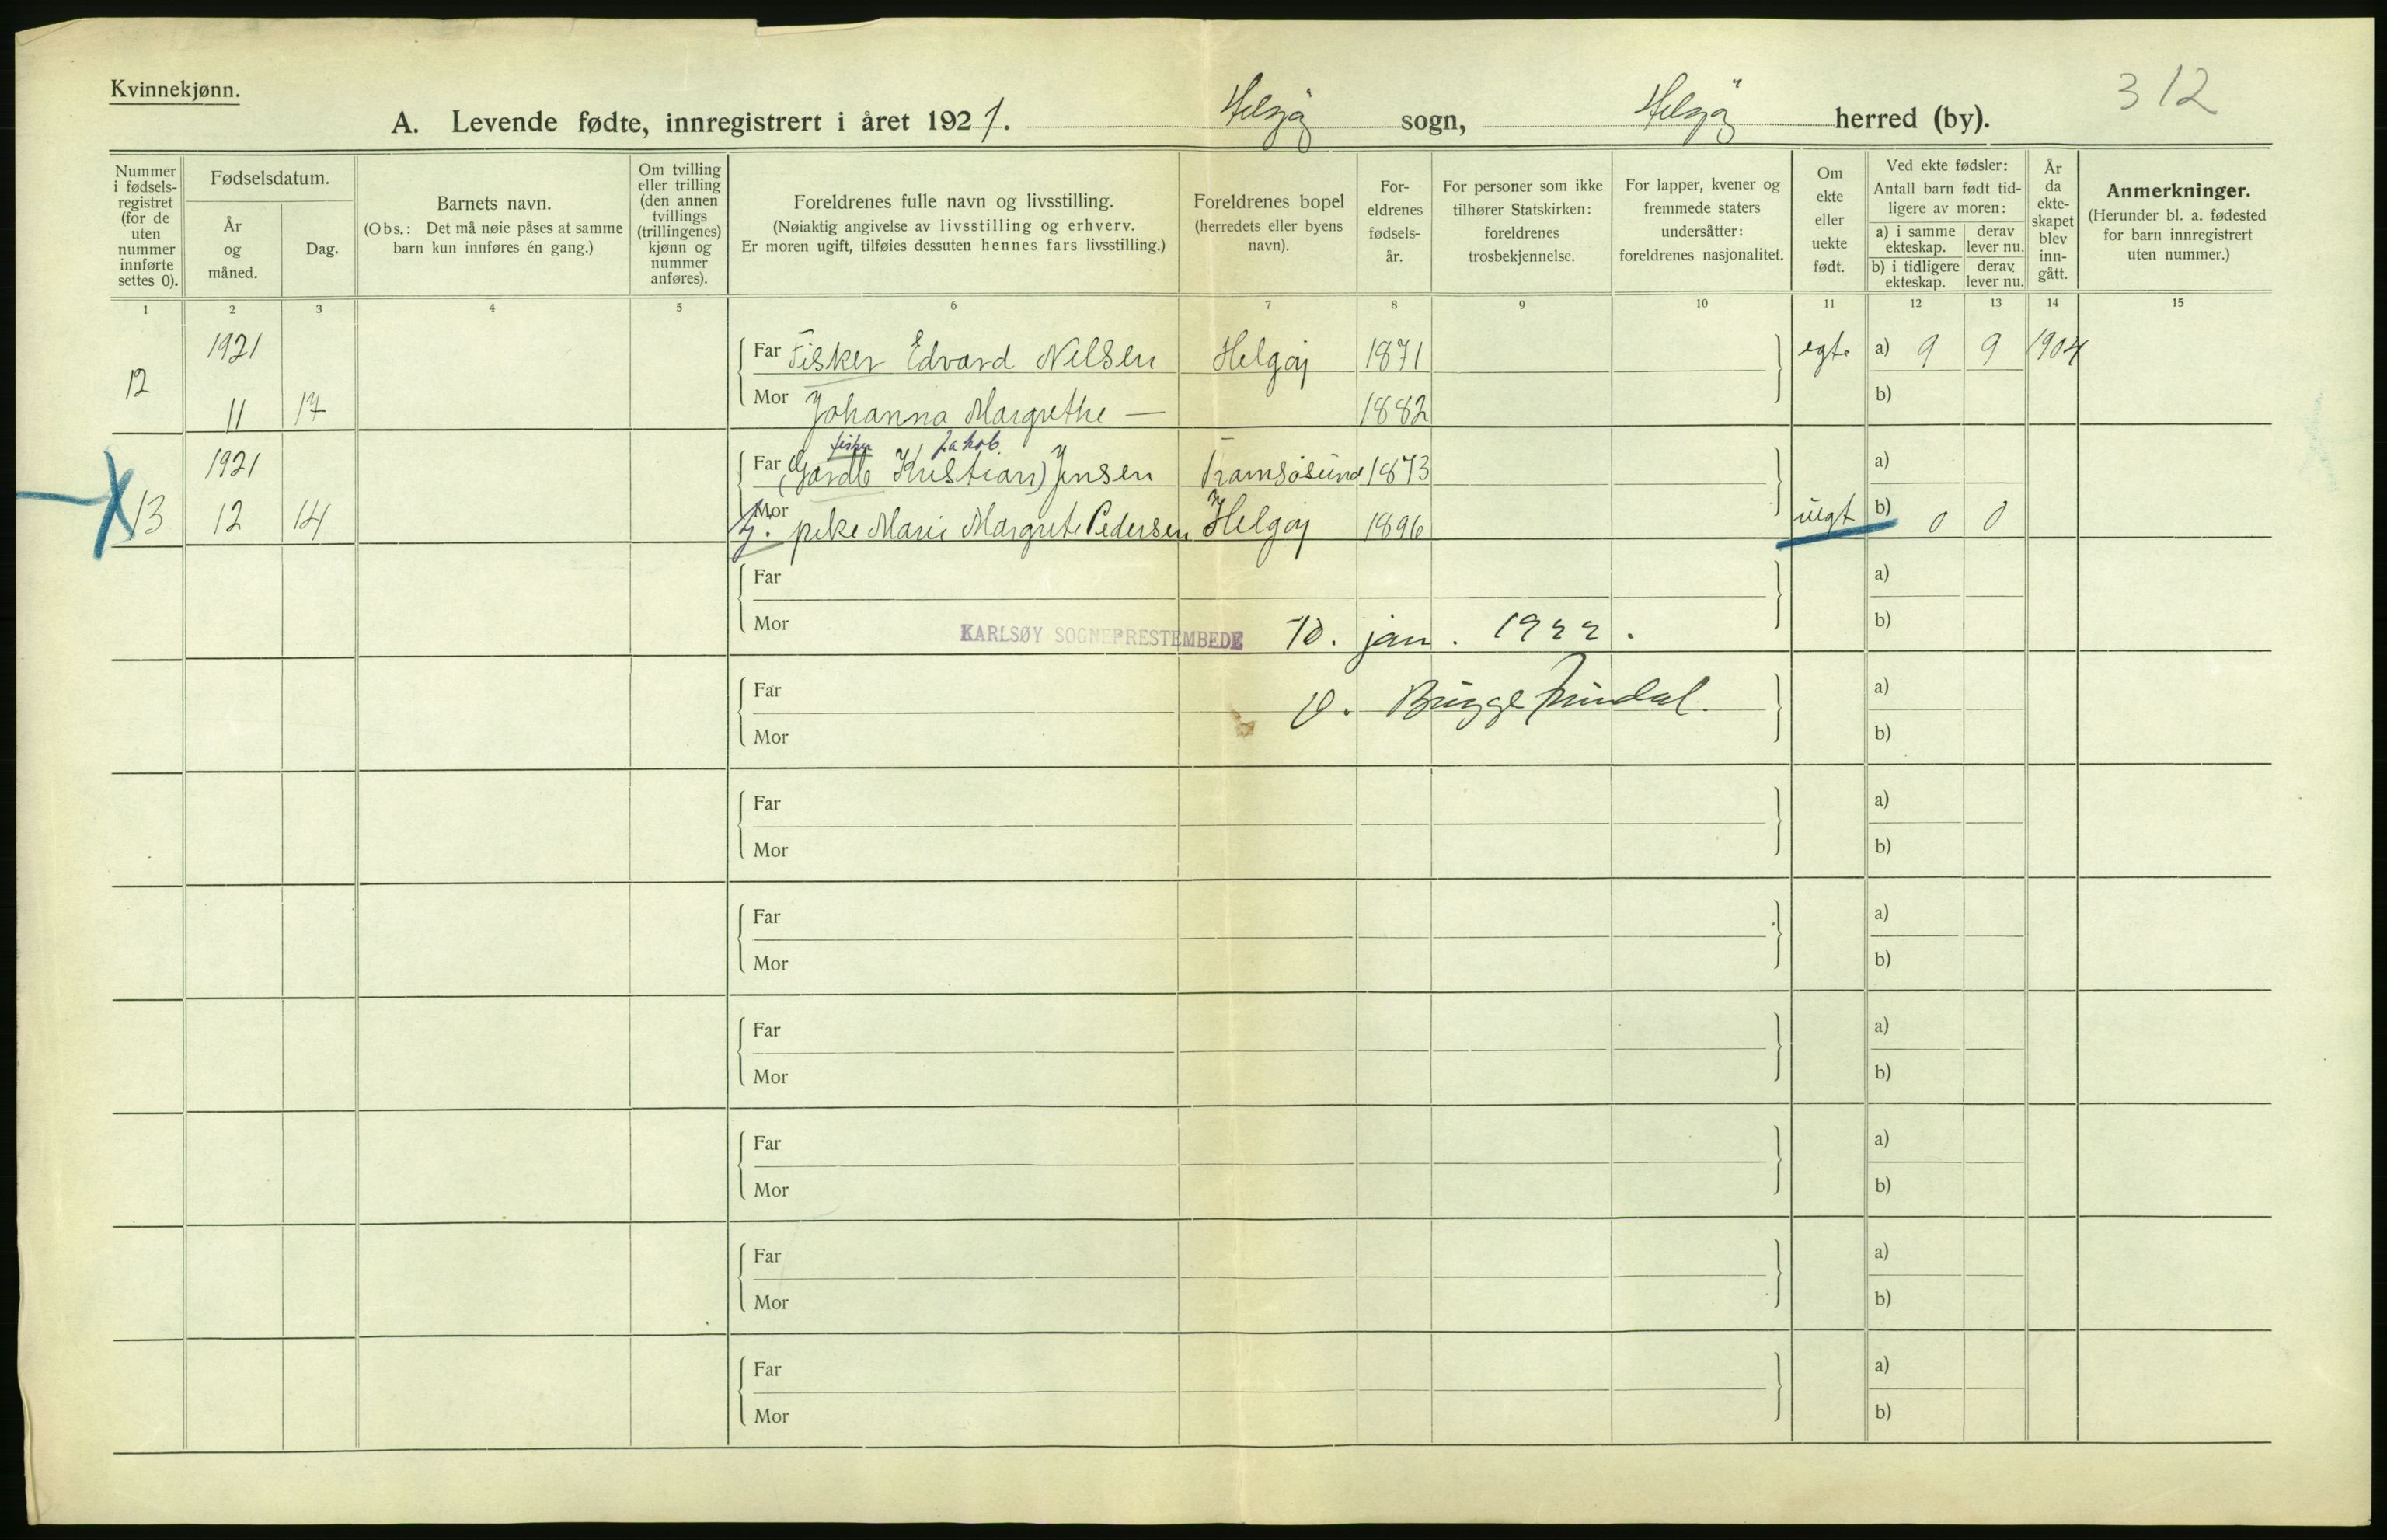 Kvinnekjønn.
312
A. Levende fødte, innregistrert i året 1921. Helgøy sogn, Helgøy herred (by).
Nummer i fødsels-registret (for de uten nummer innførte settes 0).
Fødselsdatum.
År og måned.
Dag.
Barnets navn.
(Obs.: Det må nøie påses at samme barn kun innføres én gang.)
Om tvilling eller trilling (den annen tvillings (trillingenes) kjønn og nummer anføres).
Foreldrenes fulle navn og livsstilling.
(Nøiaktig angivelse av livsstilling og erhverv.
Er moren ugift, tilføies dessuten hennes fars livsstilling.)
Foreldrenes bopel
(herredets eller byens navn).
For-eldrenes fødsels-år.
For personer som ikke tilhører Statskirken: foreldrenes trosbekjennelse.
For lapper, kvener og fremmede staters undersåtter: foreldrenes nasjonalitet.
Om ekte eller uekte født.
Ved ekte fødsler:
Antall barn født tid-ligere av moren:
a) i samme ekteskap.
derav lever nu.
b) i tidligere ekteskap.
derav lever nu.
År da ekte-skapet blev inn-gått.
Anmerkninger.
(Herunder bl. a. fødested for barn innregistrert uten nummer.)
1 2 3 4 5 6 7 8 9 10 11 12 13 14 15
1921 Far Fisker Edvard Nilsen Helgøy 1871 egte a) 9 9 1904
12 11 17 Mor Johanna Margrethe — 1882 b)
fisker Jakob
1921 Far (Gardb Kristian) Jensen Tromsøsund 1873 a)
13 12 14 Mor pike Marie Margrete Pedersen Helgøy 1896 uegt b) 0 0
Far a)
Mor b)
KARLSØY SOGNEPRESTEMBEDE 10. jan. 1922.
Far a)
O. Brügge
Mor b)
Far a)
Mor b)
Far a)
Mor b)
Far a)
Mor b)
Far a)
Mor b)
Far a)
Mor b)
Far a)
Mor b)